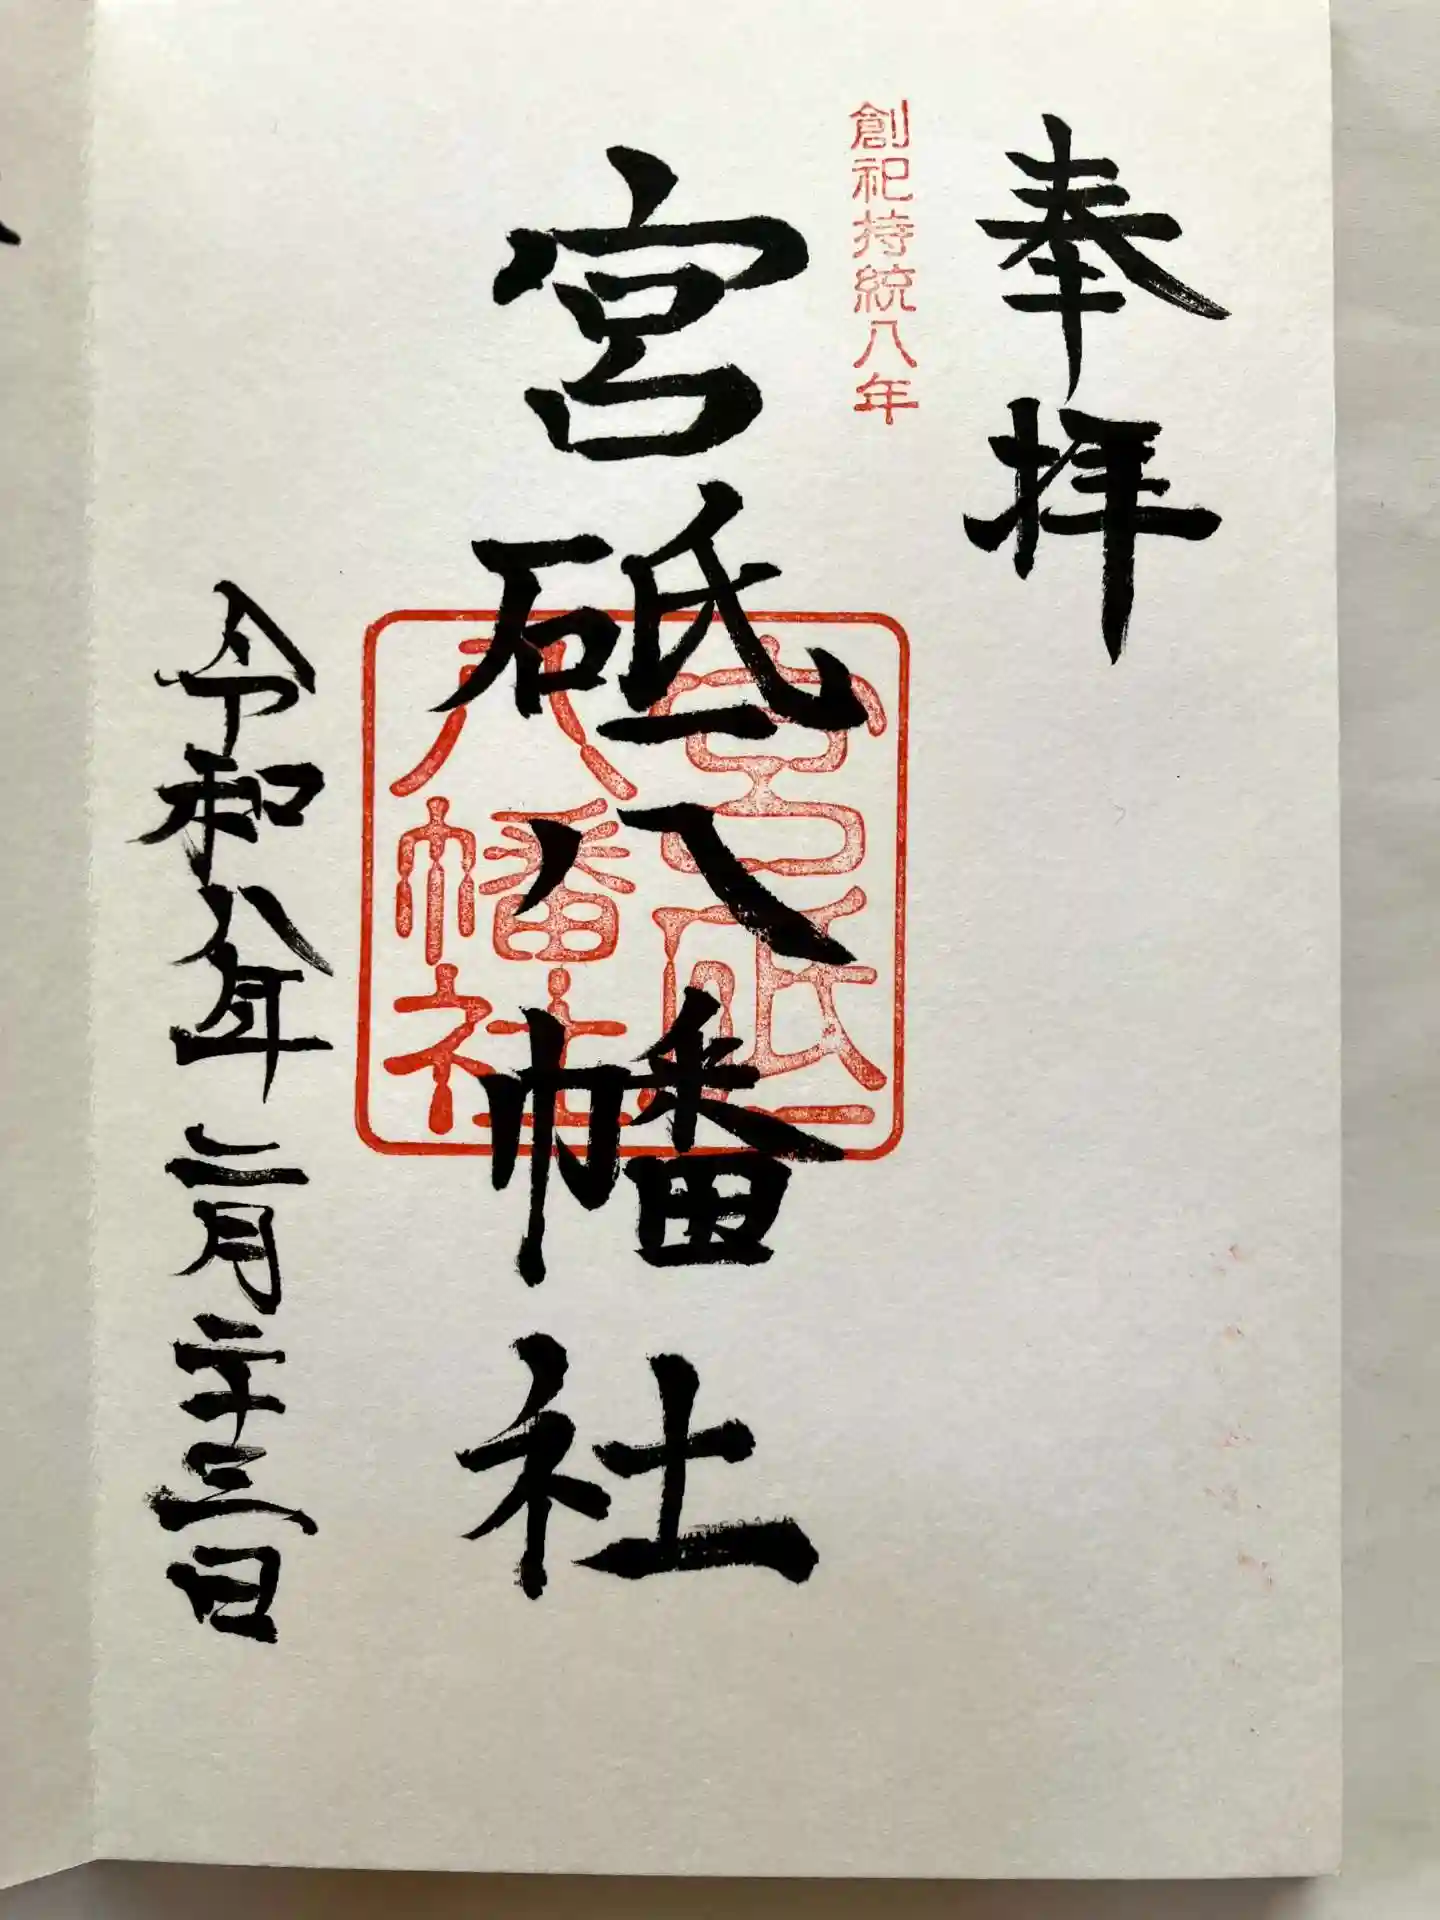 奉拝
創祀持統八年
宮砥八幡社
宮砥八幡社
令和八年二月二十三日